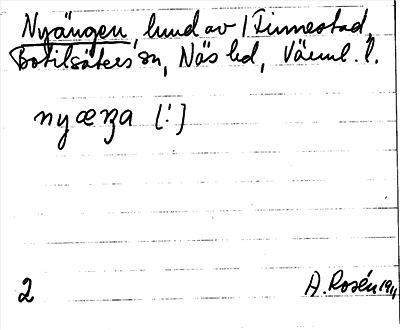 Nyängen, hmd av 1 Finnestad,
Botilsäters sn, Näs hd, Värml. l.
nyæŋa [!]
2 A. Rosén 1911